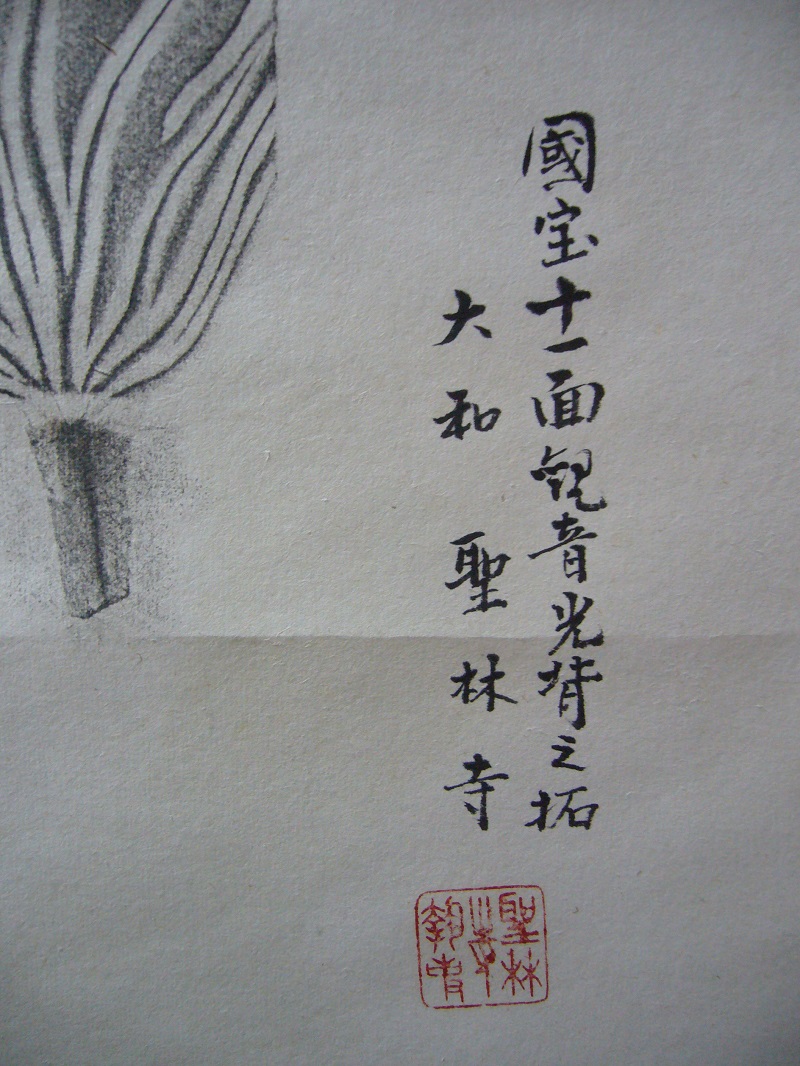 國宝十一面観音光背之拓
大和 聖林寺
聖林